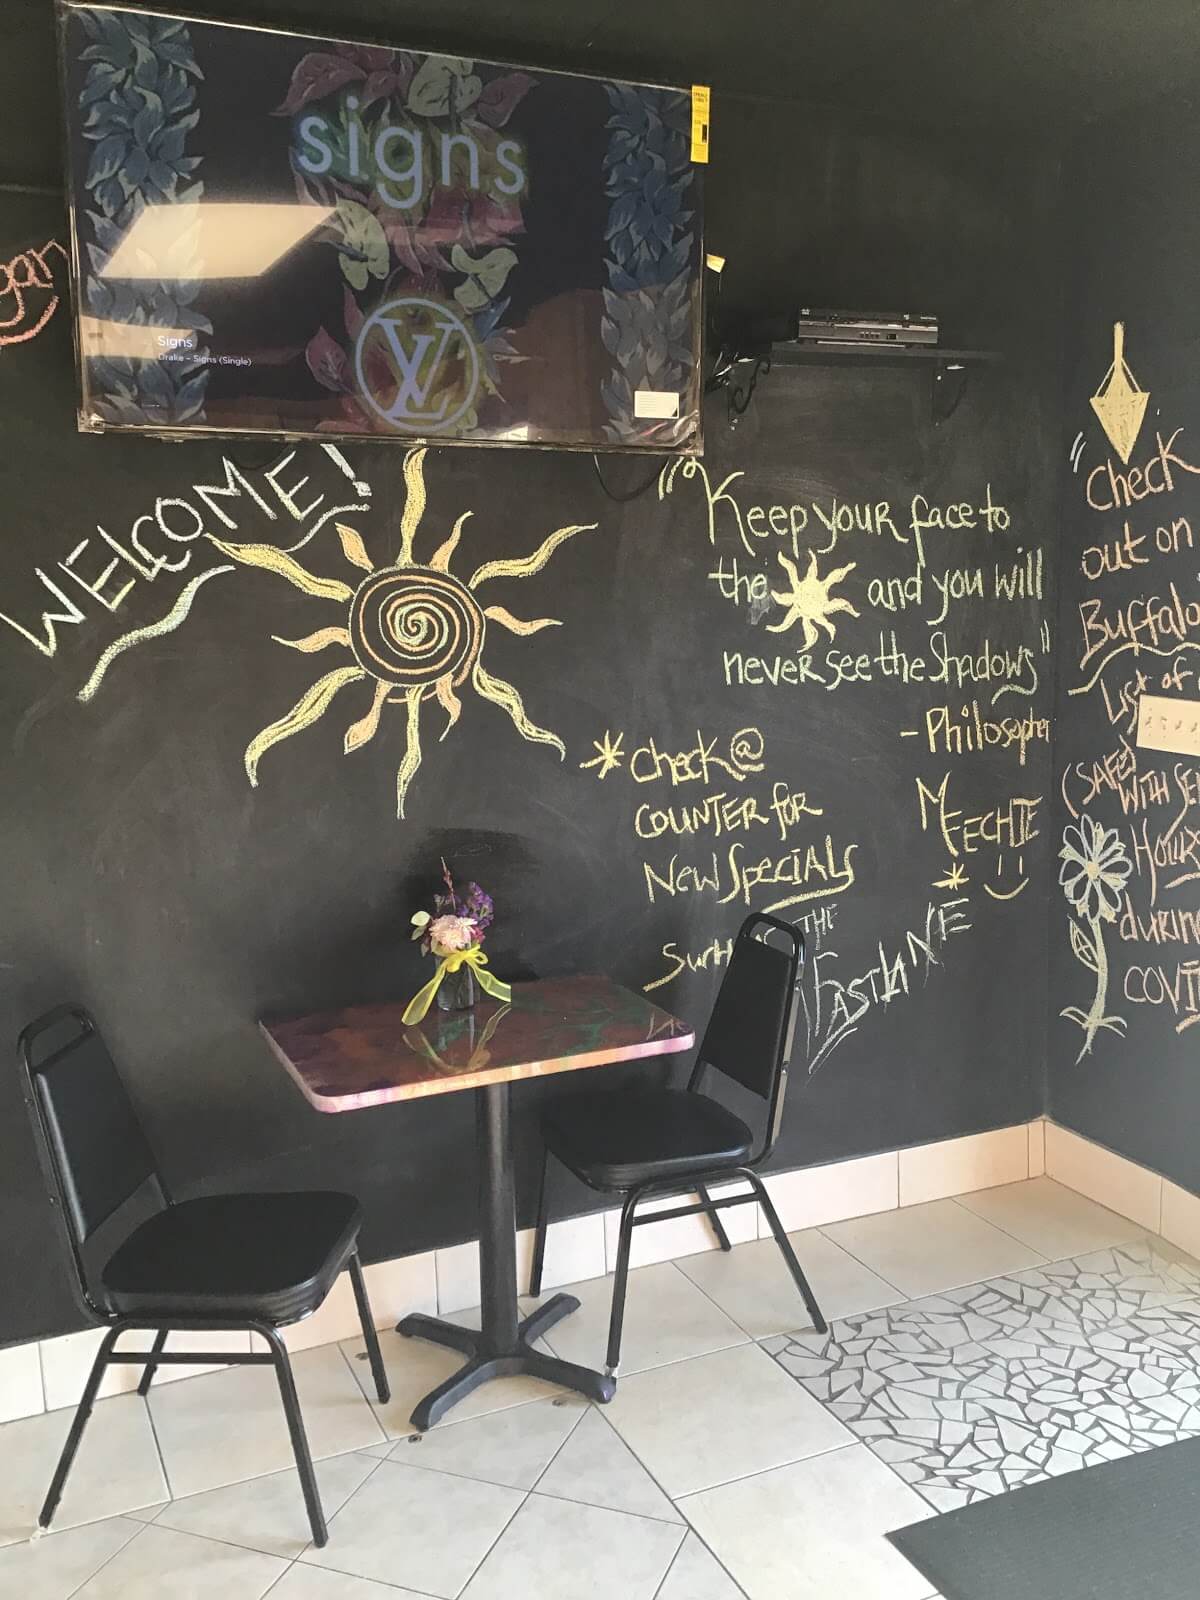 signs
LV
Signs
Drake - Signs (Single)
gan
WELCOME!
"Keep your face to
the and you will
never see the Shadows"
- Philosopher
MEECHIE
* Check @
COUNTER for
New Specials
THE
FASTLANE
"Check
out on
Buffalo
List of
(SAFE)
WITH
Hours
during
COVI